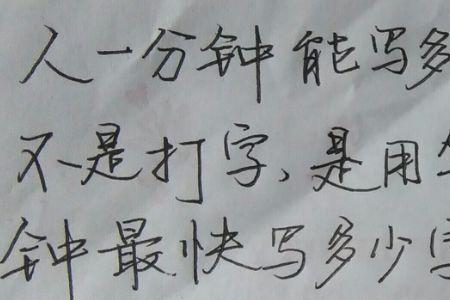 人一分钟能写多
不是打字,是用
钟最快写多少字